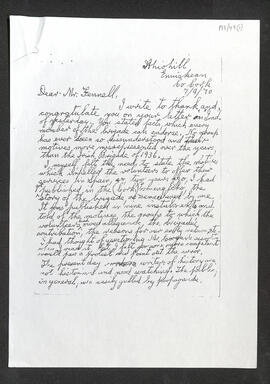 Ahiohill
Enniskean
Co Cork
7/9/70
Dear Mr. Fennell,
I write to thank and
congratulate you on your letter on
of yesterday. You stated facts which every
member of the brigade can endorse. No group
has ever been so misunderstood and their
motives more misrepresented over the years
than the Irish Brigade of 1936.
I myself felt the need to state the motives
which impelled the volunteers to offer their
services in Spain, so two years ago I had
published in the
story of the brigade as experienced by me.
It was published in nine instalments and
told of the motives, the groups to which the
volunteers owed allegiance, the brigade's
contribution, the reasons for our early return etc.
I had thought of
but I felt some more competent
would pen a protest and point out the error.
The present day writers of history are
not historians and need watching. The public,
in general, are easily gulled by propaganda.